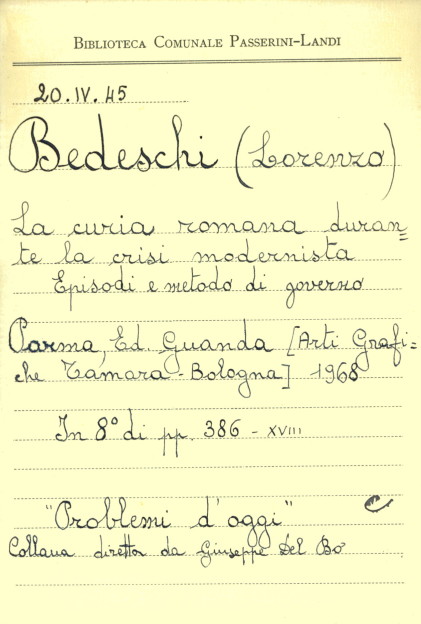 BIBLIOTECA COMUNALE PASSERINI-LANDI
20.IV.45
Bedeschi (Lorenzo)
La curia romana duran=
te la crisi modernista
Episodi e metodo di governo
Parma, Ed. Guanda [Arti Grafi=
che Tamara - Bologna] 1968
In 8° di pp. 386 - XVIII
"Problemi d'oggi"
Collana diretta da Giuseppe Del Bo